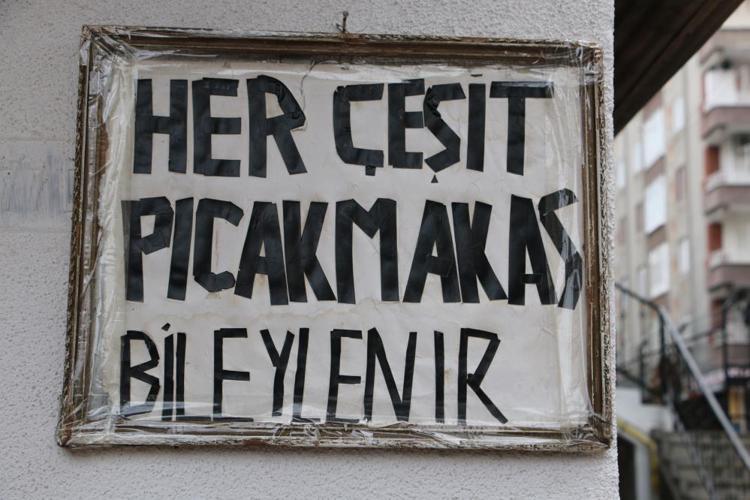 HER ÇEŞİT
PIÇAKMAKAS
BİLEYLENIR